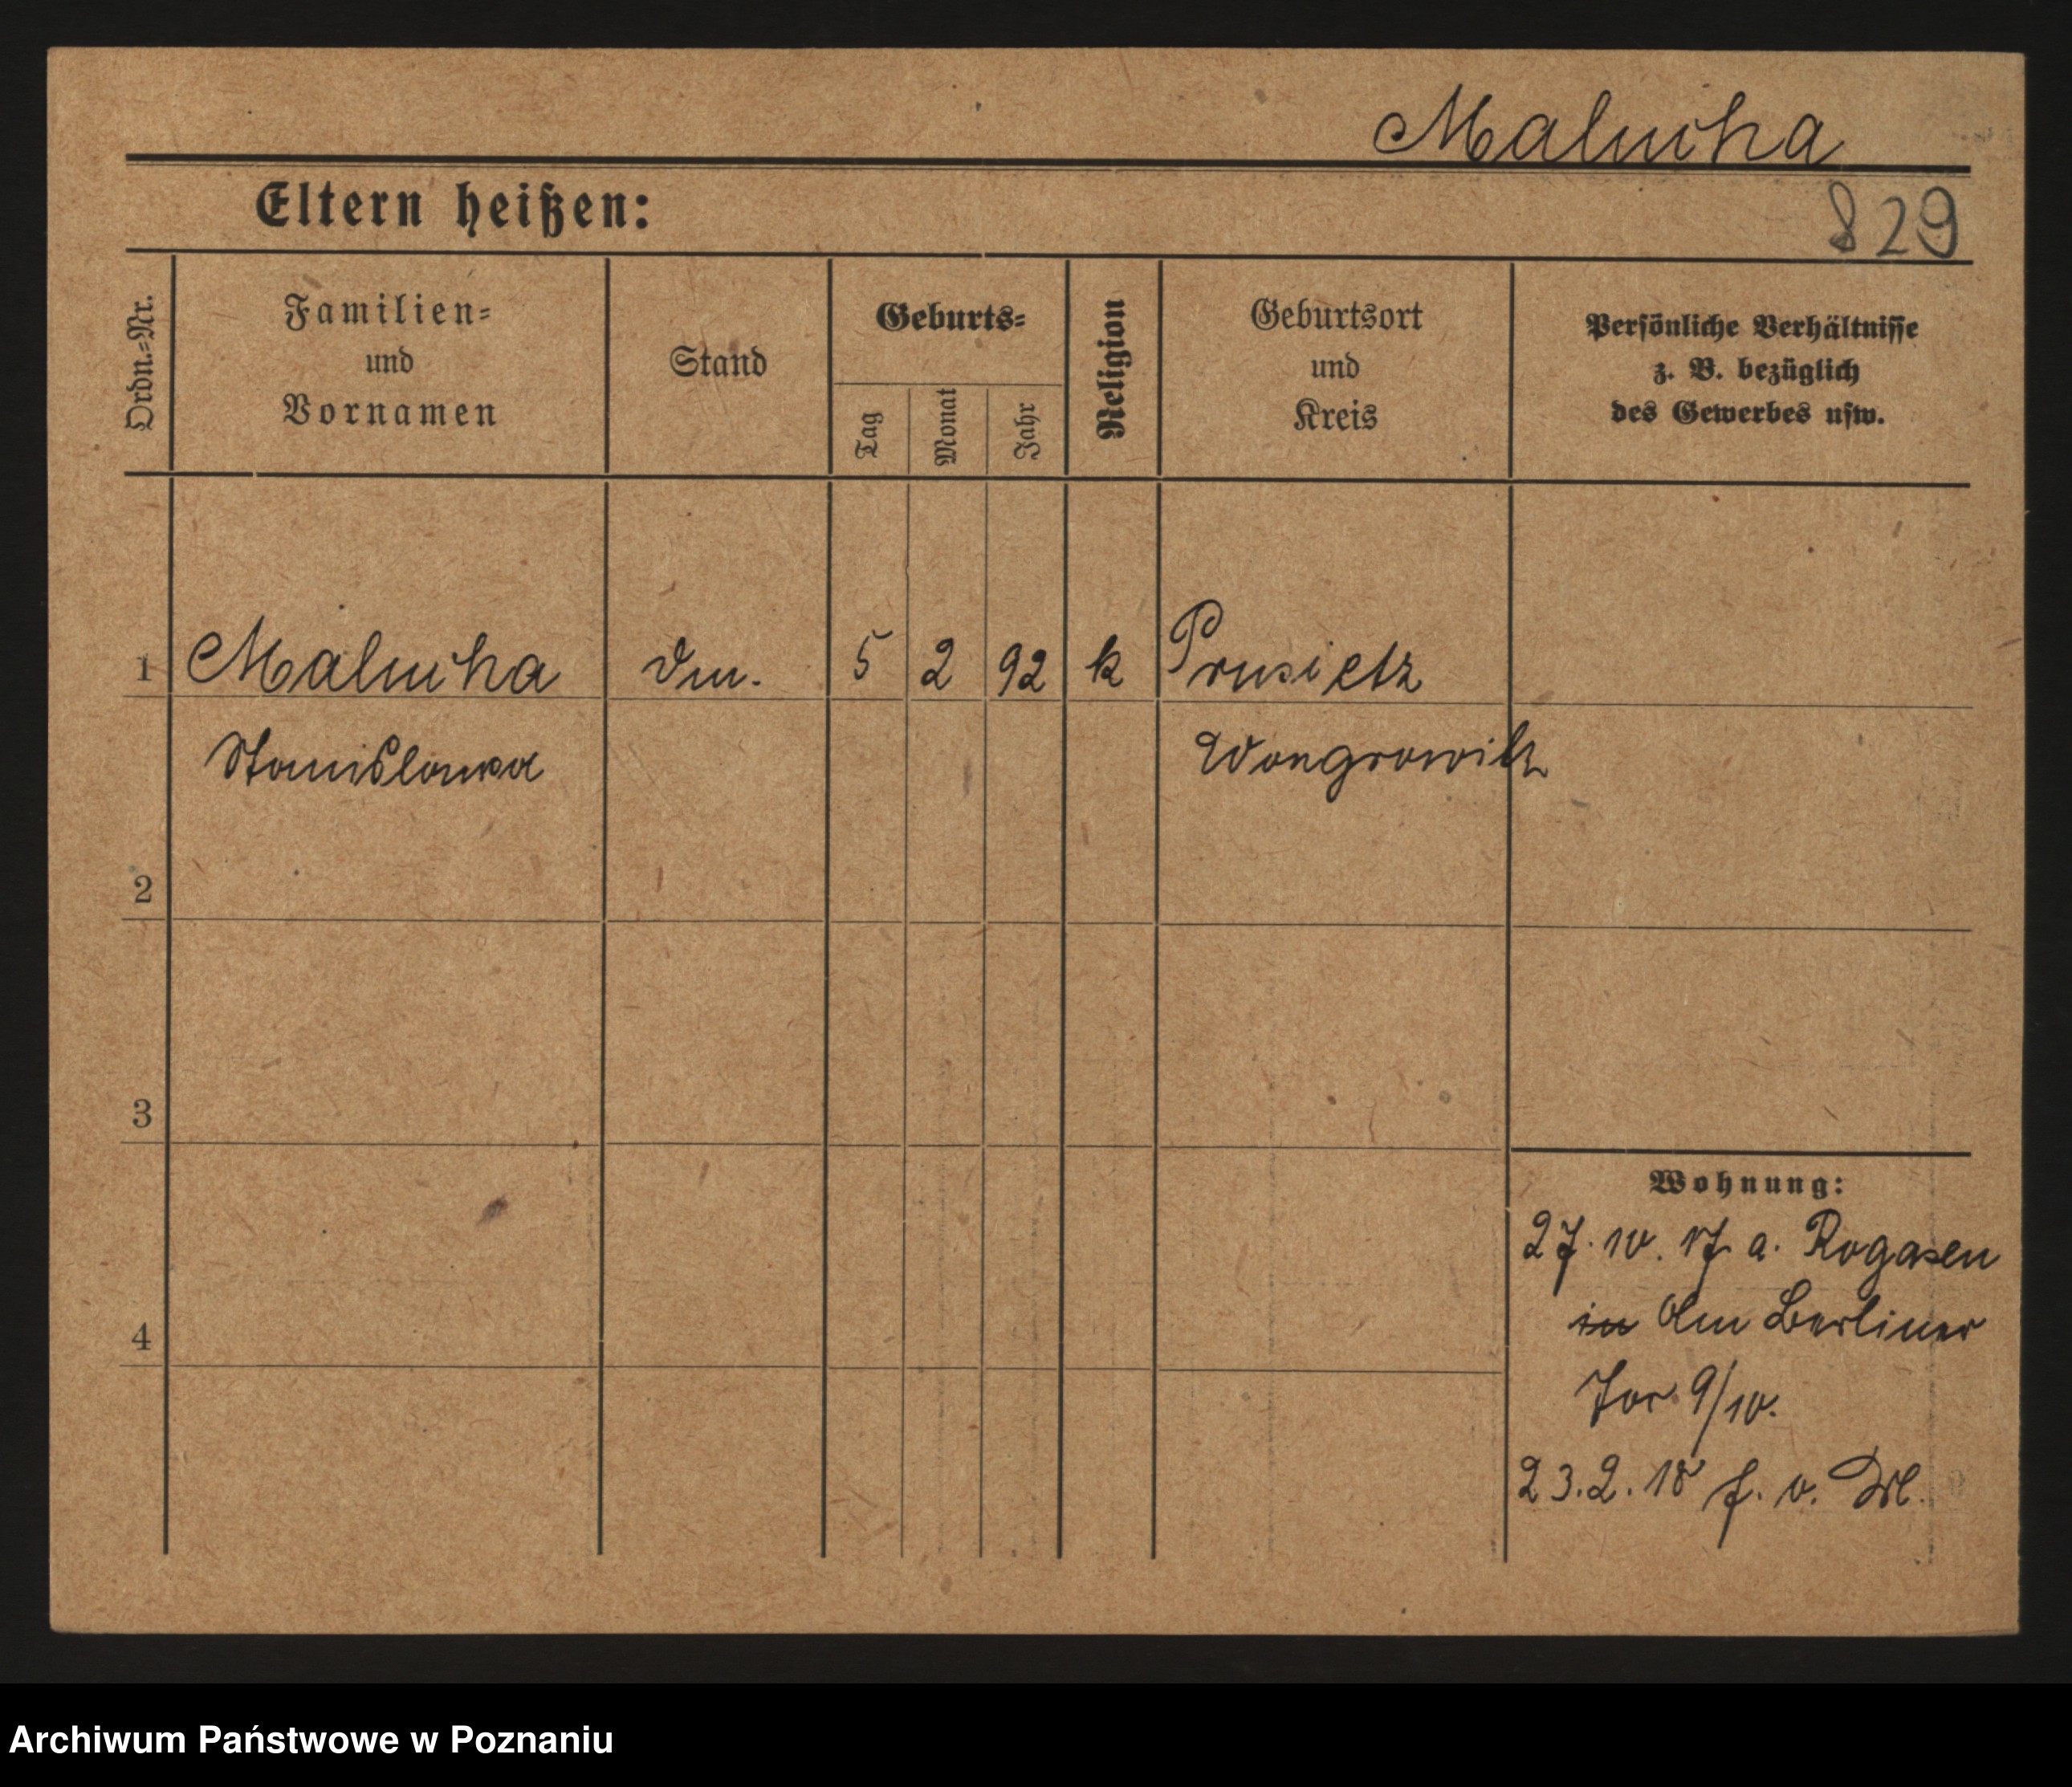 Malucha
Eltern heißen:
829
Ordn.=Nr.
Familien=
und
Vornamen
Stand
Geburts=
Tag
Monat
Jahr
Religion
Geburtsort
und
Kreis
Persönliche Verhältnisse
z. B. bezüglich
des Gewerbes usw.
1 Malucha 5 2 92 k Prusietz
Stanislawa Wongrowitz
2
3
4
Wohnung:
27. 10. 17 a. Rogasen
in Am Berliner
Tor 9/10.
23. 2. 18 f. v. M.
Archiwum Państwowe w Poznaniu